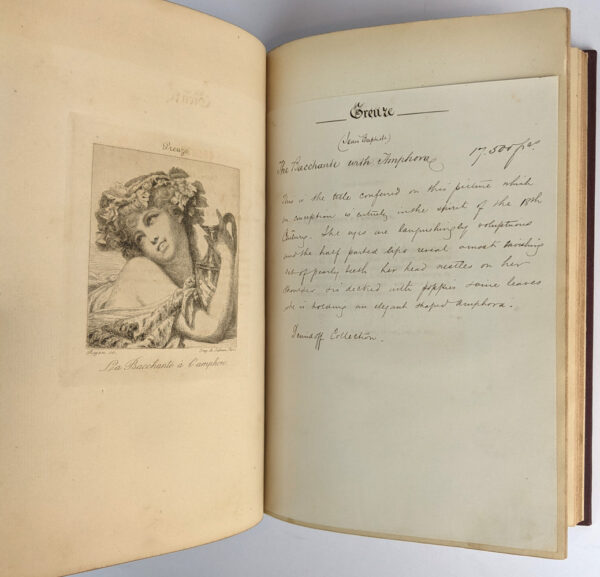 Greuze
La Bacchante à l'amphore
Greuze
(Jean Baptiste)
The Bacchante with Amphora 17.500 fcs.
This is the title confered on this picture which
in conception is entirely in the spirit of the 18th
Century. The eyes are languishingly voluptuous
and the half parted lips reveal a most ravishing
set of pearly teeth her head nestles on her
shoulder is decked with poppies some leaves
she is holding an elegant shaped Amphora.
Collection.